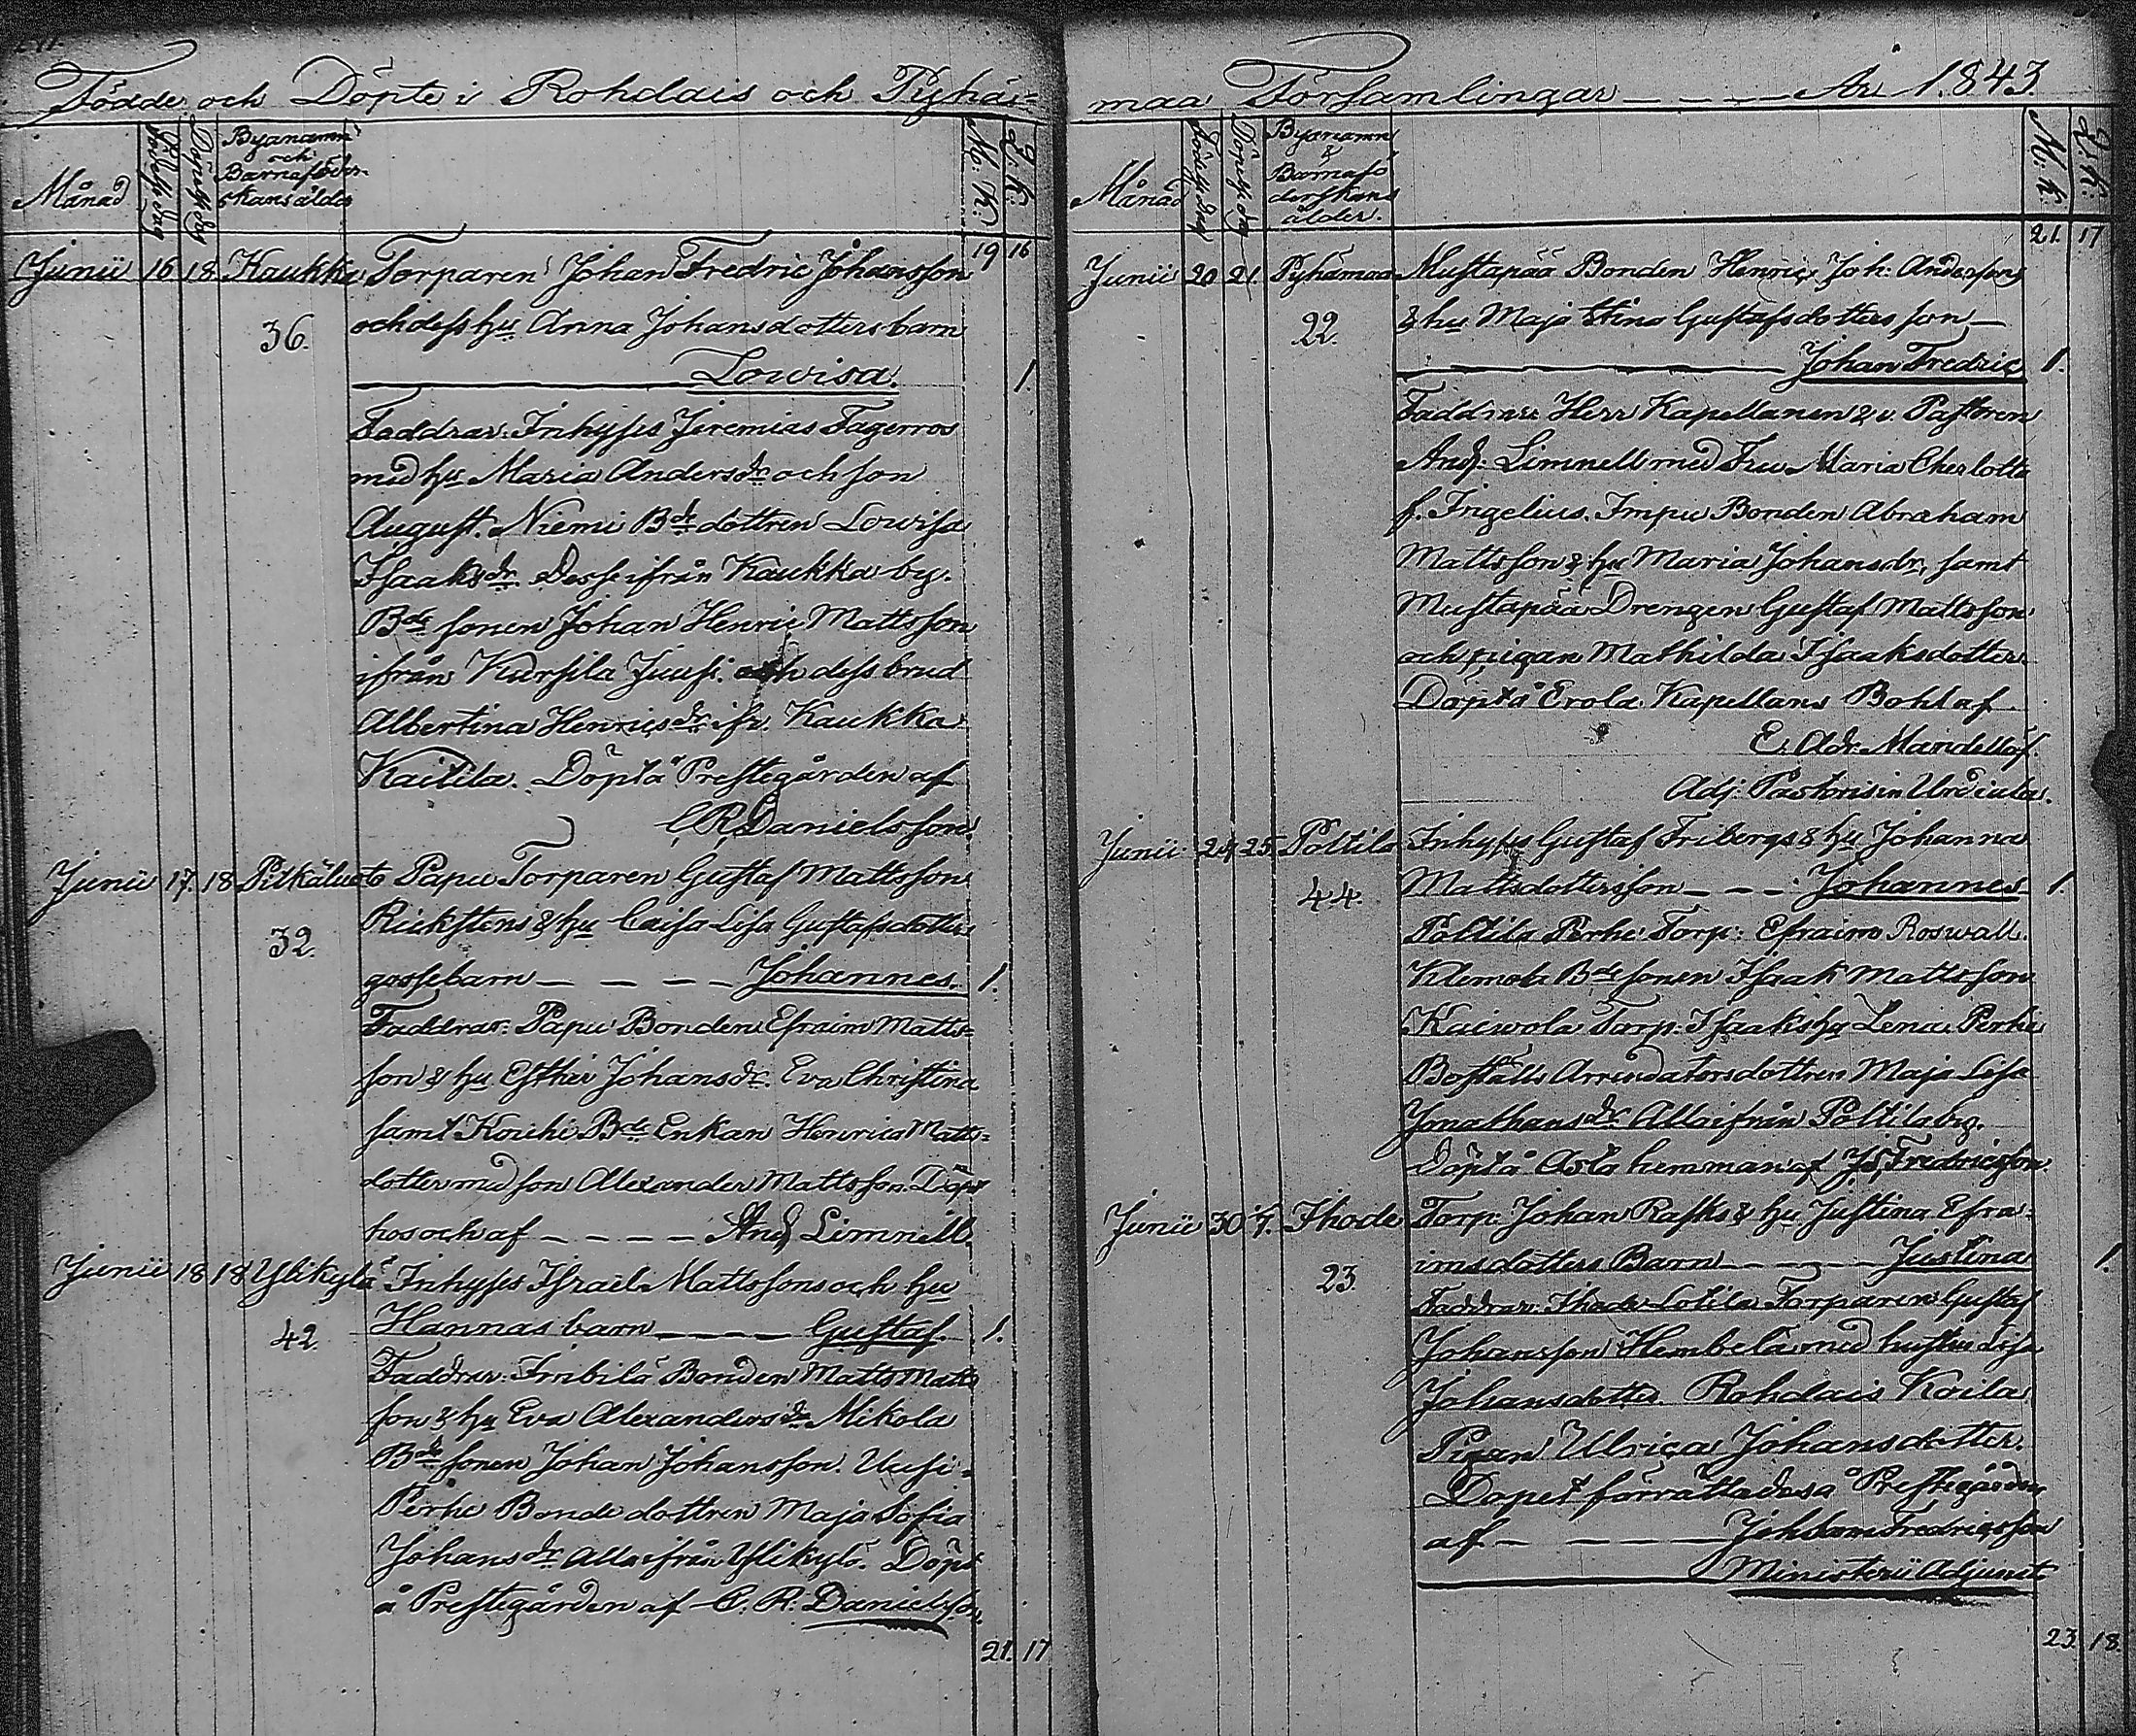 Födde och Döpte i Rohdais och Pyhä-
Månad
Födelsedag
Döpelsedag
Byanamn
och
Barnaföder-
skans ålder
M. K.
Q. K.
19 16
Junii 16 18 Kaukka Torparen Johan Fredric Johansson
36. och dess hu Anna Johansdotters barn
Lowisa. 1.
Faddrar: Inhyses Jeremias Fagerros
med hu Maria Andersdr och son
August. Niemi Bde dottren Lowisa
Isaaksdr. Desse ifrån Kaukka by.
Bde sonen Johan Henric Mattsson
ifrån Kursila Juusi. och dess brud
Albertina Henricsdr ifr. Kaukka
Kaitila. Döpt å Prestegården af
C R Danielsson.
Junii 17. 18 Pitkäluoto Papu Torparen Gustaf Mattsson
32. Rickstens & hu Caisa Lisa Gustafsdotters
gossebarn — — — — Johannes. 1.
Faddrar: Papu Bonden Efraim Matts-
son & hu Esther Johansdr. Eva Christina
samt Kouhi Bde Enkan Henrica Matts-
dotter med son Alexander Mattsson. Döpt
hos och af — — — — And Limnell.
Junii 18 18 Ylikylä Inhyses Israel Mattssons och hu
42. Hannas barn — — — — Gustaf. 1.
Faddrar: Bonden Matts Matts
son & hu Eva Alexandersdr Mikola
Bde sonen Johan Johansson. Uusi-
Perhe Bonde dottren Maja Sofia
Johansdr alla ifrån Ylikylä. Döpt
å Prestegården af C. R. Danielsson.
21. 17
maa Församlingar — — — — År 1843.
Månad
Födelsedag
Döpelsedag
Byanamn
&
Barnafö
derskans
ålder.
M. K.
Q. K.
21. 17
Junii 20 21. Pyhämaa Mustapää Bonden Henric Joh: Anderssons
22. & hu Maja Stina Gustafsdotters son —
Johan Fredric 1.
Faddrar: Herr Kapellanen & v. Pastoren
And: Limnell med Fru Maria Charlotta
f. Ingelius. Impu Bonden Abraham
Mattsson & hu Maria Johansdr, samt
Mustapää Drengen Gustaf Mattsson
och pigan Mathilda Isaaksdotter
Döpt å Erola Kapellans Bohl af
E. Adr. Mandellöf
Adj. Pastoris in Urdiala.
Junii 24 25. Poltila Inhyses Gustaf Fribergs & hu Johanna
44. Mattsdotters son — — — Johannes 1.
Poltila Perhe Torp: Efraim Roswall.
Klemola Bde sonen Isaak Mattsson
Kaiwola Torp. Isaaks hu Lena. Perhe
Boställs Arrendators dottren Maja Lisa
Jonathansdr Alla ifrån Poltila by.
Döpt å Asla hemman af Fredricsson
Junii 30. 7. Ihode Torp. Johan Rasks & hu Justina Efra-
23. imsdotters Barn — — — — Justina 1.
Faddrar: Ihode Lotila Torparen Gustaf
Johansson Hembelä med hustru Lisa
Johansdotter. Rohdais Koila
Pigan Ulrica Johansdotter.
Dopet förrättades å Prestegården
af — — — — Joh Fredricsson
Ministerii Adjunct.
23. 18.